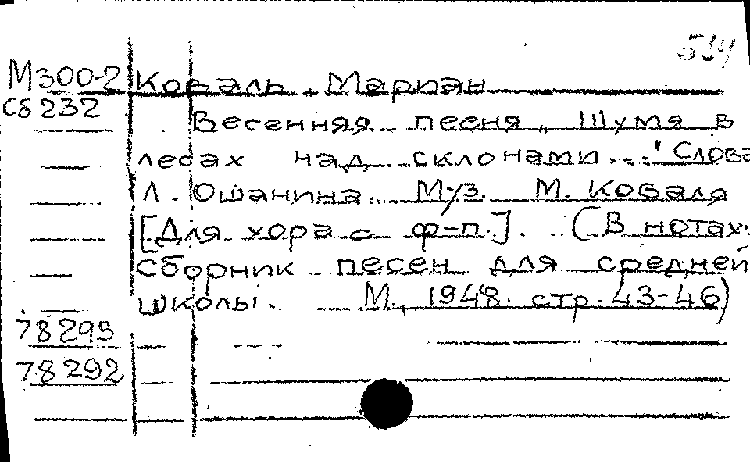 534
М300-2 Коваль, Мариан
Сб 232
Весенняя песня „Шумя в
лесах над склонами..." Слова
Л. Ошанина. Муз. М. Коваля
[Для хора с ф-п.]. (В нотах:
Сборник песен для средней
школы. М., 1948. стр. 43-46)
78295
78292